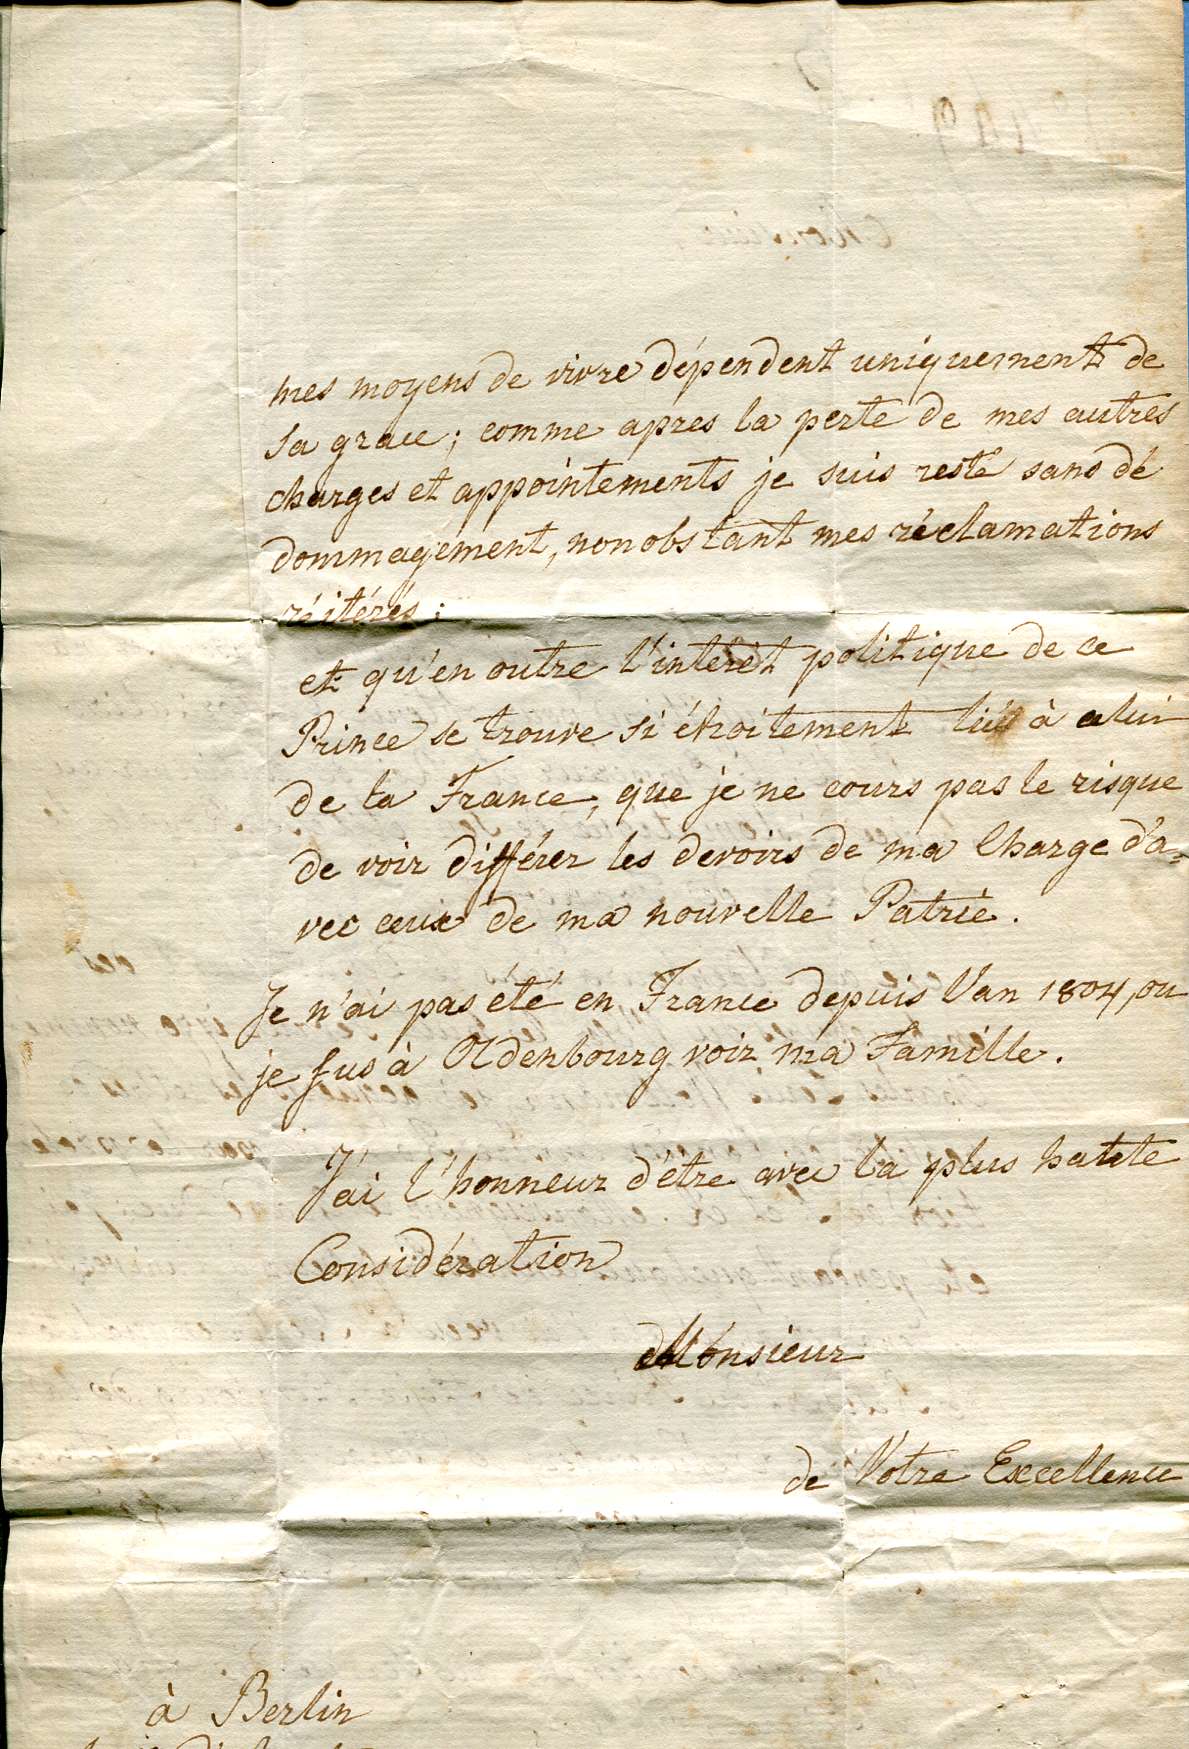 mes moyens de vivre dépendent uniquement de
sa grace; comme apres la perte de mes autres
charges et appointements je suis resté sans dé
dommagement, nonobstant mes réclamations
réitérés:
et qu'en outre l'interèt politique de ce
Prince se trouve si étroitement lié à celui
de la France, que je ne cours pas le risque
de voir différer les devoirs de ma Charge d'a=
vec ceux de ma nouvelle Patrie.
Je n'ai pas été en France depuis l'an 1804, ou
je fus à Oldenbourg voir ma Famille.
J'ai l'honneur d'être avec la plus haute
Considération
Monsieur
de Votre Excellence
à Berlin